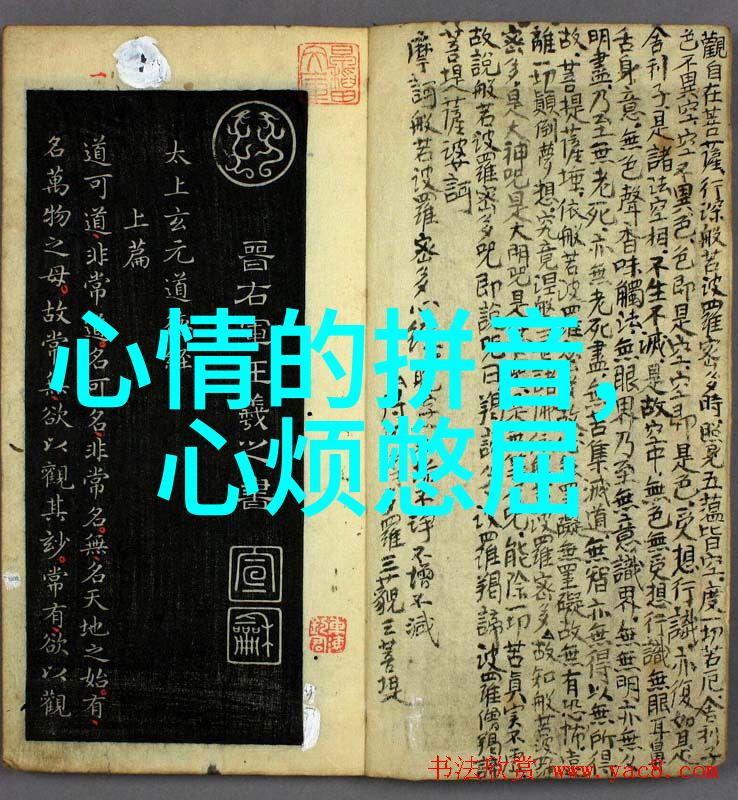 心情的拼音,
心烦憋屈
觀自在菩薩行深般若波羅密多時照見五蘊皆空度一切苦厄舍利子
色不異空空不異色色即是空空即是色受想行識亦復如是
舍利子是諸法空相不生不滅是故空中無色無受想行識無眼耳鼻
舌身意無色聲香味觸法無眼界乃至無意識界無無明亦無
明盡乃至無老死亦無老死盡無苦集滅道無智亦無得以無所得
故菩提薩埵依般若波羅罣礙無罣礙故無有恐怖遠
離一切顛倒夢想究竟涅槃波羅密多故知般若波羅
密多是大神咒是大明咒是咒能除一切苦真實不虛
故說般若波羅密多咒即說咒曰揭諦波羅揭諦波羅僧揭諦
菩提薩婆訶
摩訶般若波羅密多心經
不淨不增不減
羅三藐三菩提
晉右軍王羲之書
宣龢
太上玄元道德經
上篇
道可道非常道名可名非常名無名天地之始有
名萬物之母故常無欲以觀其妙常有欲以觀
书法欣赏 www.yac8.com